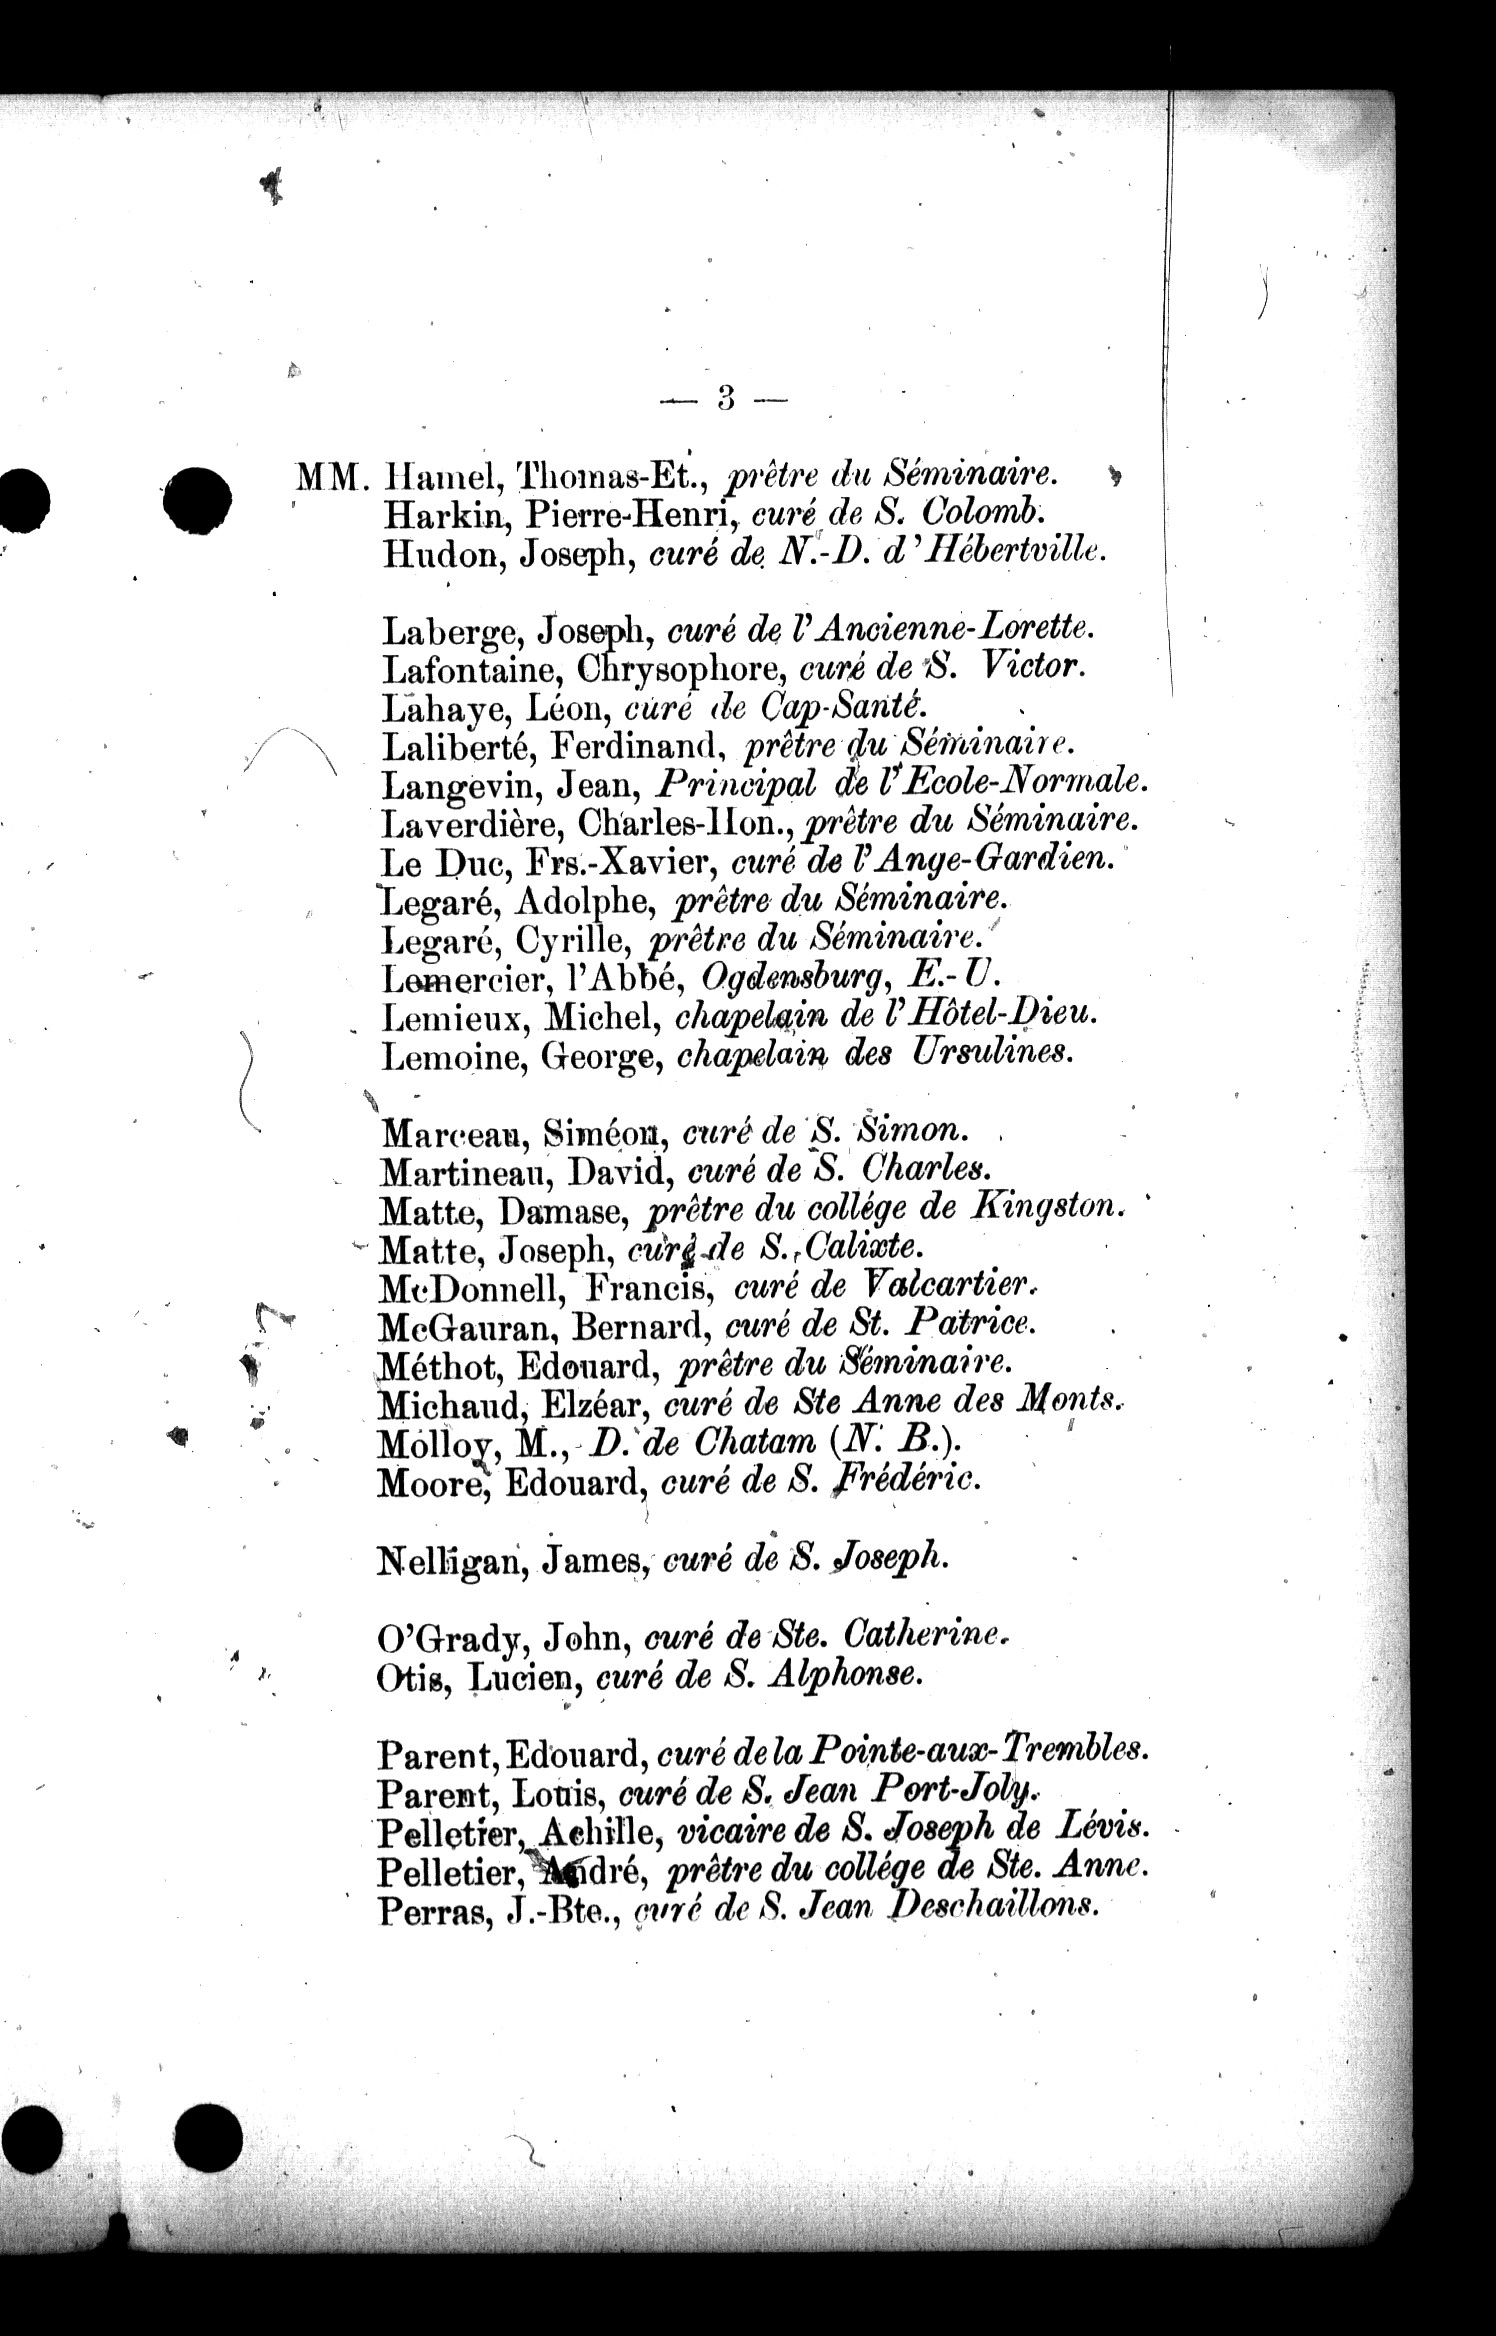 — 3 —
MM. Hamel, Thomas-Et., prêtre du Séminaire.
Harkin, Pierre-Henri, curé de S. Colomb.
Hudon, Joseph, curé de N.-D. d'Hébertville.
Laberge, Joseph, curé de l'Ancienne-Lorette.
Lafontaine, Chrysophore, curé de S. Victor.
Lahaye, Léon, curé de Cap-Santé.
Laliberté, Ferdinand, prêtre du Séminaire.
Langevin, Jean, Principal de l'Ecole-Normale.
Laverdière, Charles-Hon., prêtre du Séminaire.
Le Duc, Frs.-Xavier, curé de l'Ange-Gardien.
Legaré, Adolphe, prêtre du Séminaire.
Legaré, Cyrille, prêtre du Séminaire.
Lemercier, l'Abbé, Ogdensburg, E.-U.
Lemieux, Michel, chapelain de l'Hôtel-Dieu.
Lemoine, George, chapelain des Ursulines.
Marceau, Siméon, curé de S. Simon.
Martineau, David, curé de S. Charles.
Matte, Damase, prêtre du collége de Kingston.
Matte, Joseph, curé de S. Calixte.
McDonnell, Francis, curé de Valcartier.
McGauran, Bernard, curé de St. Patrice.
Méthot, Edouard, prêtre du Séminaire.
Michaud, Elzéar, curé de Ste Anne des Monts.
Molloy, M., D. de Chatam (N. B.).
Moore, Edouard, curé de S. Frédéric.
Nelligan, James, curé de S. Joseph.
O'Grady, John, curé de Ste. Catherine.
Otis, Lucien, curé de S. Alphonse.
Parent, Edouard, curé de la Pointe-aux-Trembles.
Parent, Louis, curé de S. Jean Port-Joly.
Pelletier, Achille, vicaire de S. Joseph de Lévis.
Pelletier, André, prêtre du collége de Ste. Anne.
Perras, J.-Bte., curé de S. Jean Deschaillons.